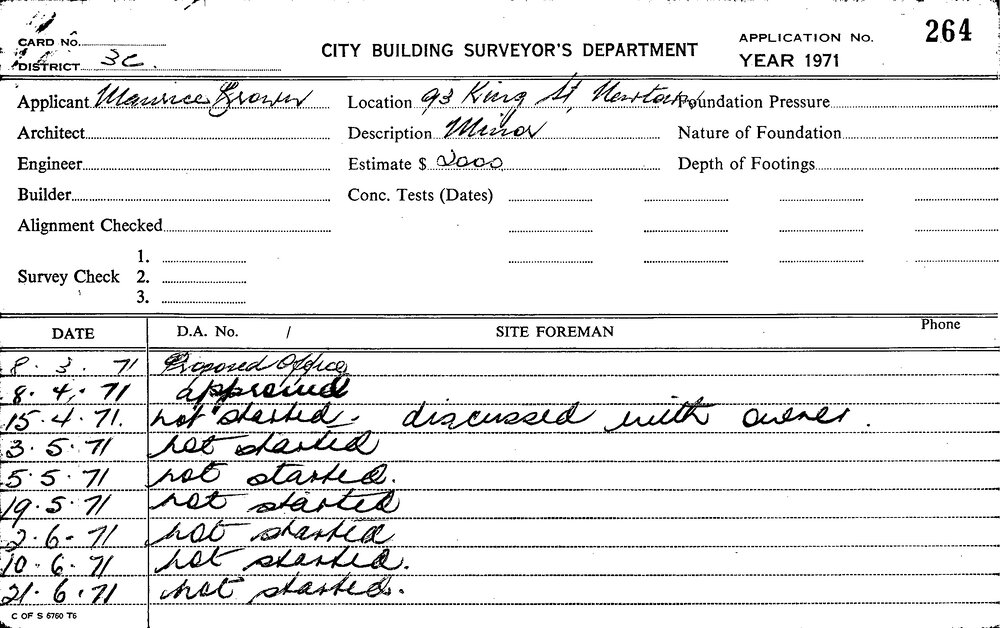 CARD No.
DISTRICT 3C.
CITY BUILDING SURVEYOR'S DEPARTMENT
APPLICATION No. 264
YEAR 1971
Applicant Maurice Brown Location 93 King St, Newtown Foundation Pressure
Architect Description Minor Nature of Foundation
Engineer Estimate $ 2000 Depth of Footings
Builder Conc. Tests (Dates)
Alignment Checked
1.
Survey Check 2.
3.
DATE D.A. No. / SITE FOREMAN Phone
8. 3. 71 Proposed Office
8. 4. 71 approved
15.4.71. not started. discussed with owner.
3.5.71 not started
5.5.71 not started.
19.5.71 not started
2.6.71 not started
10.6.71 not started.
21.6.71 not started.
C OF S 6760 T6